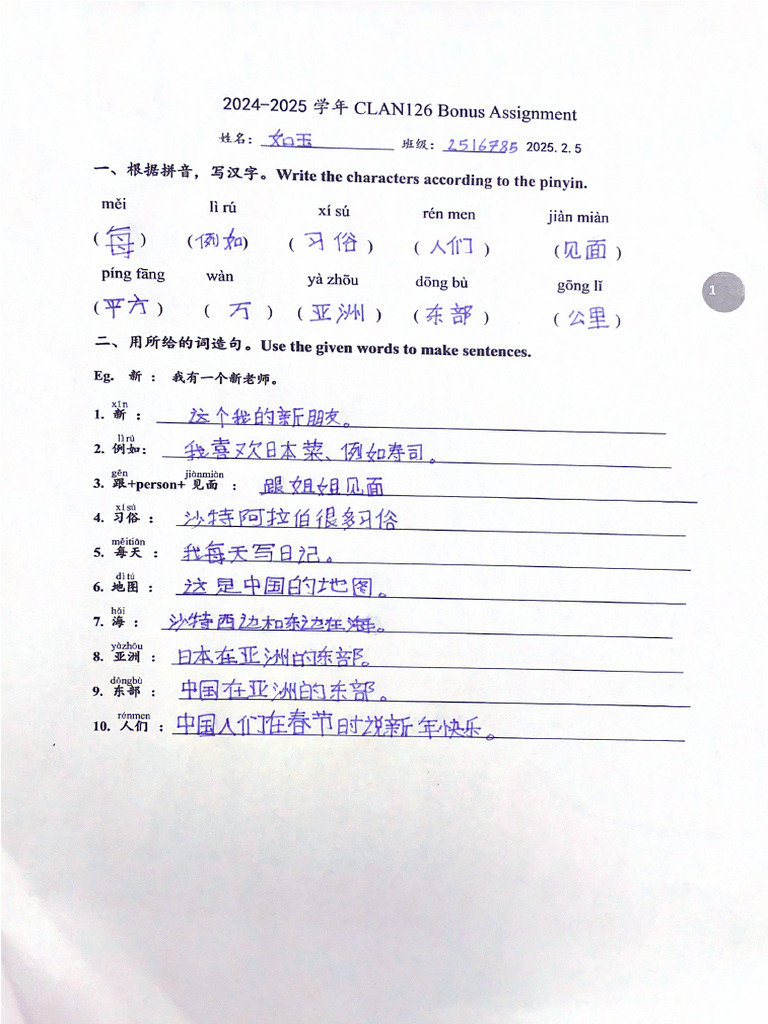 2024-2025 学年 CLAN126 Bonus Assignment
姓名： 如玉 班级： 2516785 2025.2.5
一、根据拼音，写汉字。Write the characters according to the pinyin.
měi lì rú xí sú rén men jiàn miàn
( 每 ) ( 例如) ( 习俗 ) ( 人们 ) ( 见面 )
píng fāng wàn yà zhōu dōng bù gōng lǐ
( 平方 ) ( 万 ) ( 亚洲 ) ( 东部 ) ( 公里 )
1
二、用所给的词造句。Use the given words to make sentences.
Eg. 新 ： 我有一个新老师。
xīn
1. 新 ： 这个我的新朋友。
lìrú
2. 例如： 我喜欢日本菜、例如寿司。
gēn jiànmiàn
3. 跟+person+ 见面 ： 跟姐姐见面
xísú
4. 习俗 ： 沙特阿拉伯很多习俗
měitiān
5. 每天 ： 我每天写日记。
dìtú
6. 地图 ： 这是中国的地图。
hǎi
7. 海 ： 沙特西边和东边在海。
yàzhōu
8. 亚洲 ： 日本在亚洲的东部。
dōngbù
9. 东部 ： 中国在亚洲的东部。
rénmen
10. 人们 ： 中国人们在春节时说新年快乐。